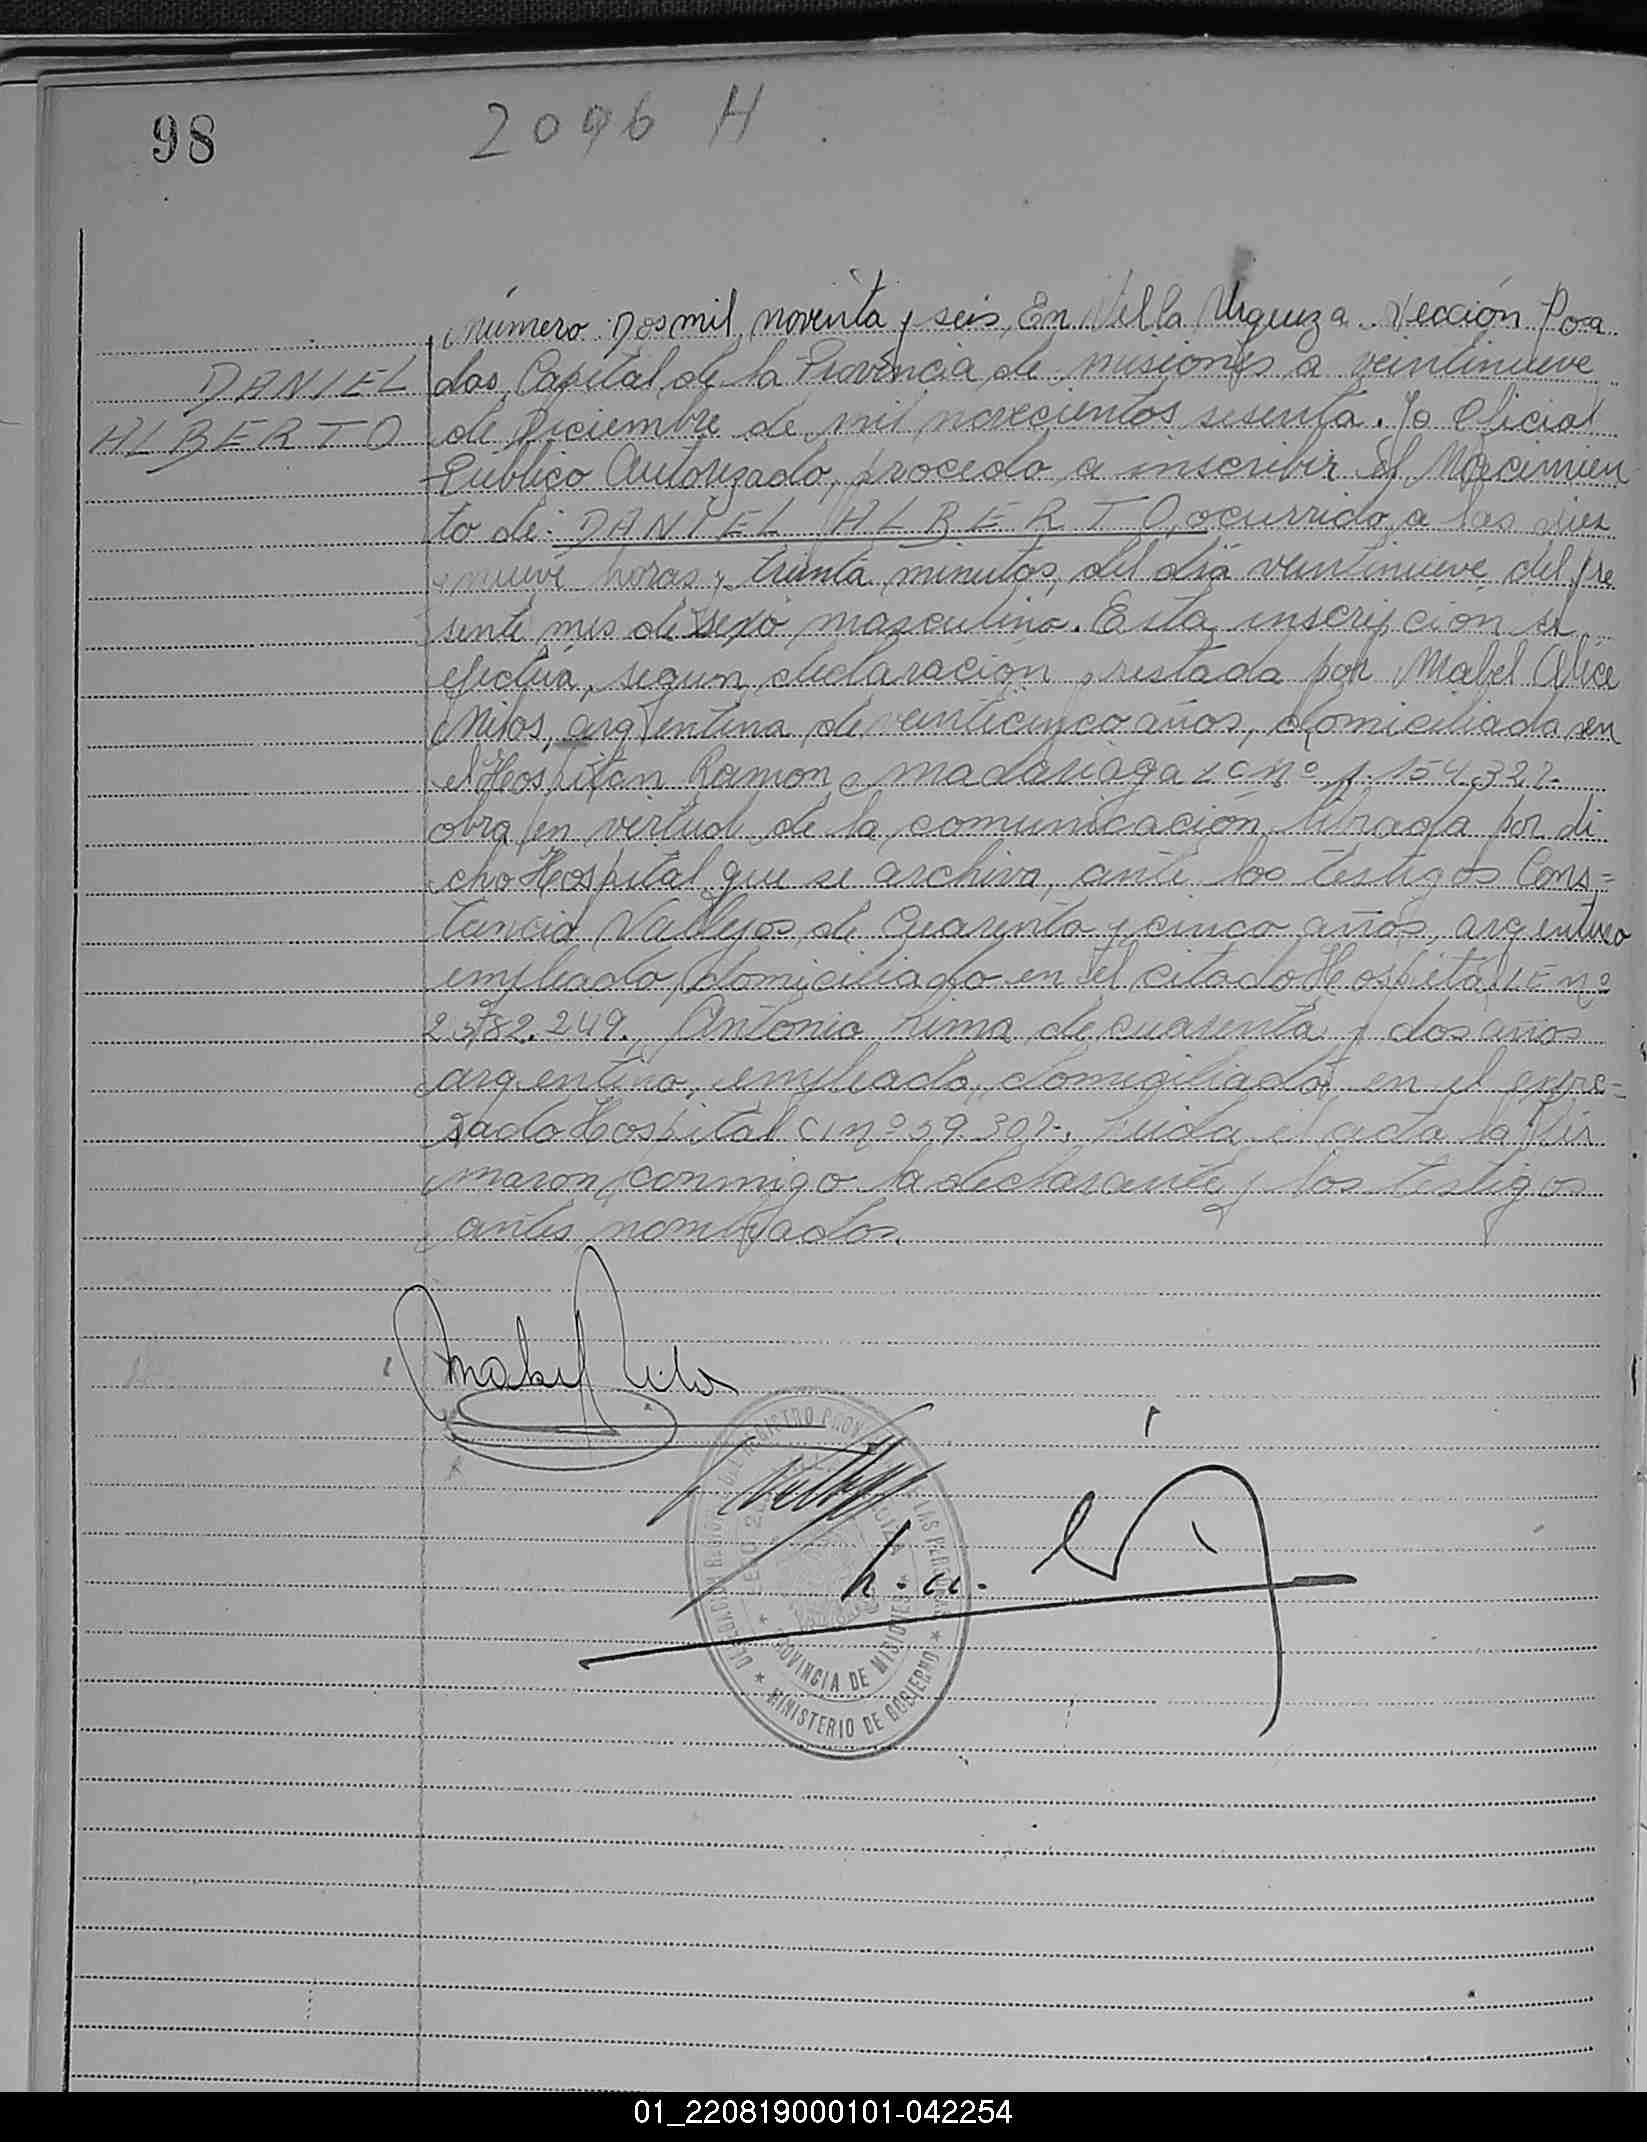 98
2096 H
Número Dos mil, noventa y seis, En Villa Urquiza Sección Posa
DANIEL das, Capital de la Provincia de misiones a veintinueve
ALBERTO de Diciembre de mil novecientos sesenta. Yo Oficial
Público Autorizado, procedo a inscribir el Nacimien
to de: DANIEL ALBERTO, ocurrido a las diez
nueve horas y treinta minutos, del día veintinueve del pre
sente mes de sexo masculino. Esta inscripción se
efectúa, segun declaración prestada por Mabel Alice
argentina de veinticinco años, domiciliada en
el Hospital Ramon Madariaga
obra en virtud de la comunicación librada por di
cho Hospital que se archiva, ante los testigos Cons=
tancio Vallejos de Cuarenta y cinco años, argentino
empleado, domiciliado en el citado Hospital LE nº
2.782.249. Antonio Lima de cuarenta y dos años
argentino, empleado, domiciliado en el expre=
sado Hospital CI nº 59.307-. Leida el acta la fir
maron conmigo la declarante y los testigos
antes nombrados.
PROVINCIA DE MISIONES
MINISTERIO DE GOBIERNO
01_220819000101-042254